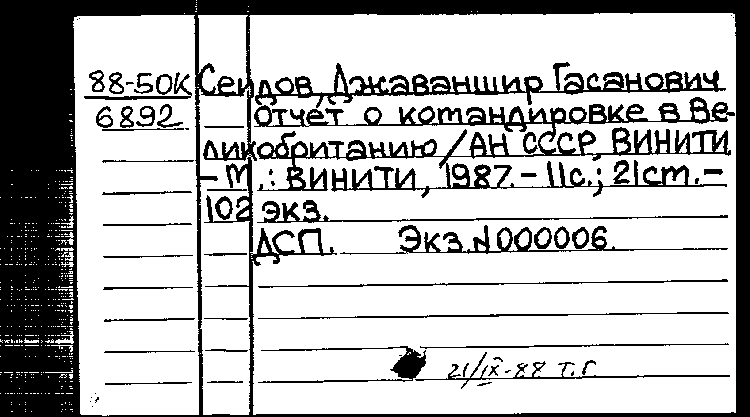 88-50К Сеидов, Джаваншир Гасанович
6892 Отчёт о командировке в Ве-
ликобританию / АН СССР, ВИНИТИ
- М.: ВИНИТИ, 1987. - 11с.; 21см. -
102 экз.
ДСП. Экз.N000006.
21/IX-88 Т.Г.